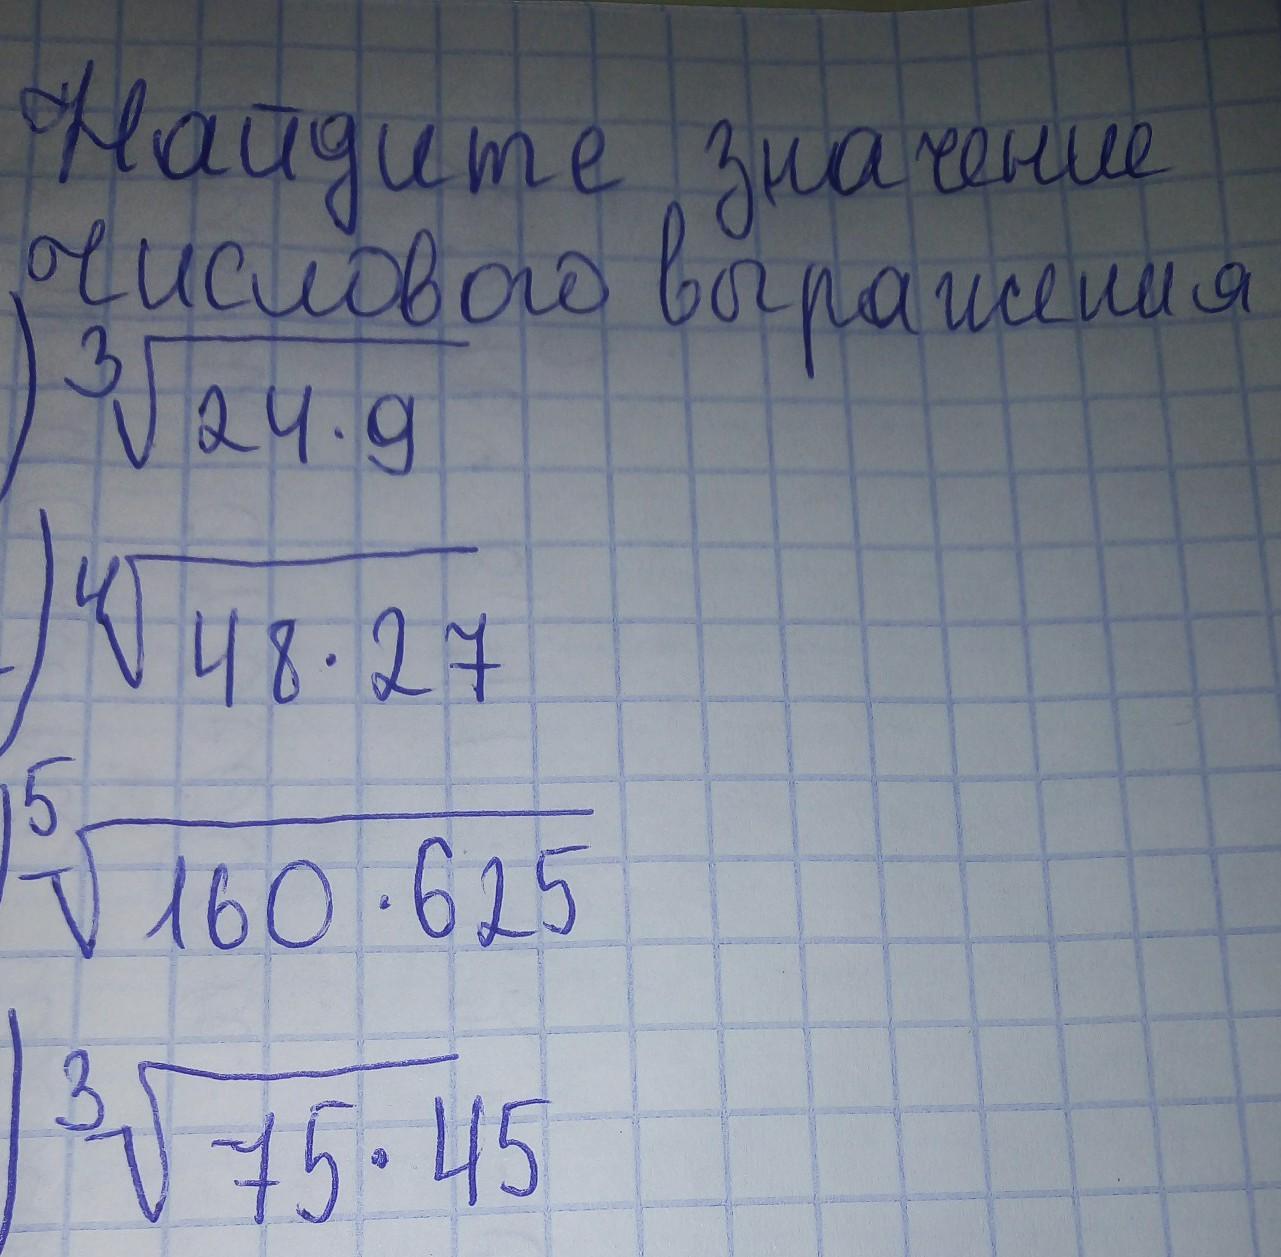 Найдите значение
числового выражения
) ³√24·9
) ⁴√48·27
) ⁵√160·625
) ³√75·45